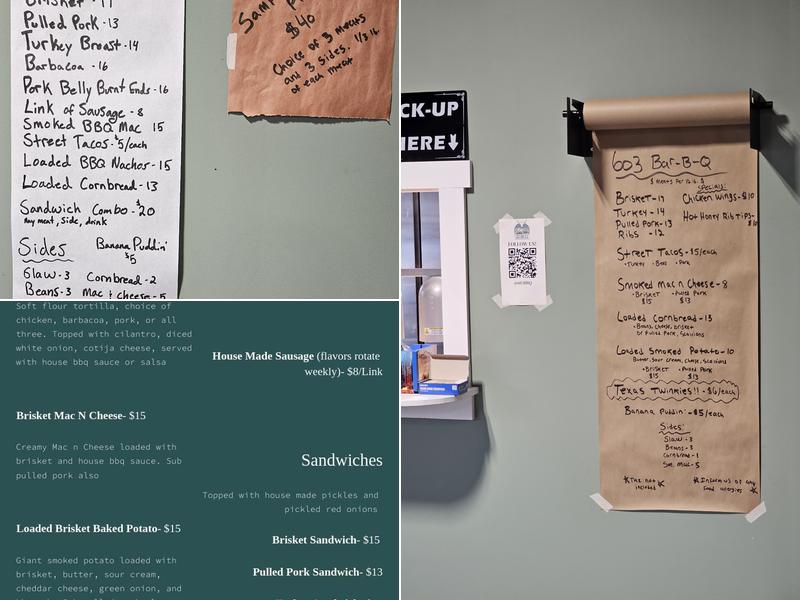 Pulled Pork -13
Turkey Breast -14
Barbacoa -16
Pork Belly Burnt Ends -16
Link of Sausage - 8
Smoked BBQ Mac 15
Street Tacos - $5/each
Loaded BBQ Nachos - 15
Loaded Cornbread - 13
Sandwich Combo - $20
Any meat, Side, drink
Sides
Banana Puddin'
$5
Slaw - 3 Cornbread - 2
Beans - 3 Mac & cheese - 5
$40
Choice of 3 meats
and 3 Sides. 1/3 lb
of each meat
Soft flour tortilla, choice of
chicken, barbacoa, pork, or all
three. Topped with cilantro, diced
white onion, cotija cheese, served
with house bbq sauce or salsa
Brisket Mac N Cheese- $15
Creamy Mac n Cheese loaded with
brisket and house bbq sauce. Sub
pulled pork also
Loaded Brisket Baked Potato- $15
Giant smoked potato loaded with
brisket, butter, sour cream,
cheddar cheese, green onion, and
House Made Sausage (flavors rotate
weekly)- $8/Link
Sandwiches
Topped with house made pickles and
pickled red onions
Brisket Sandwich- $15
Pulled Pork Sandwich- $13
CK-UP
HERE
FOLLOW US!
603 Bar-B-Q
Specials:
Brisket - 17
Turkey - 14
Pulled Pork - 13
Ribs - 12
Chicken Wings - $10
Hot Honey Rib Tips -
Street Tacos - $5/each
• Turkey • Beef • Pork
Smoked Mac n Cheese - 8
• Brisket • Pulled Pork
$15 $13
Loaded Cornbread - 13
• Beans, cheese, brisket
or Pulled Pork, Scallions
Loaded Smoked Potato - 10
Butter, Sour cream, Cheese, Scallions
• Brisket • Pulled Pork
$15 $13
Texas Twinkies!! - $6/each
Banana Puddin' - $5/each
Sides:
Slaw - 3
Beans - 3
Cornbread - 1
Sm. Mac - 5
*Tax not
included*
*Inform us of any
food allergies*